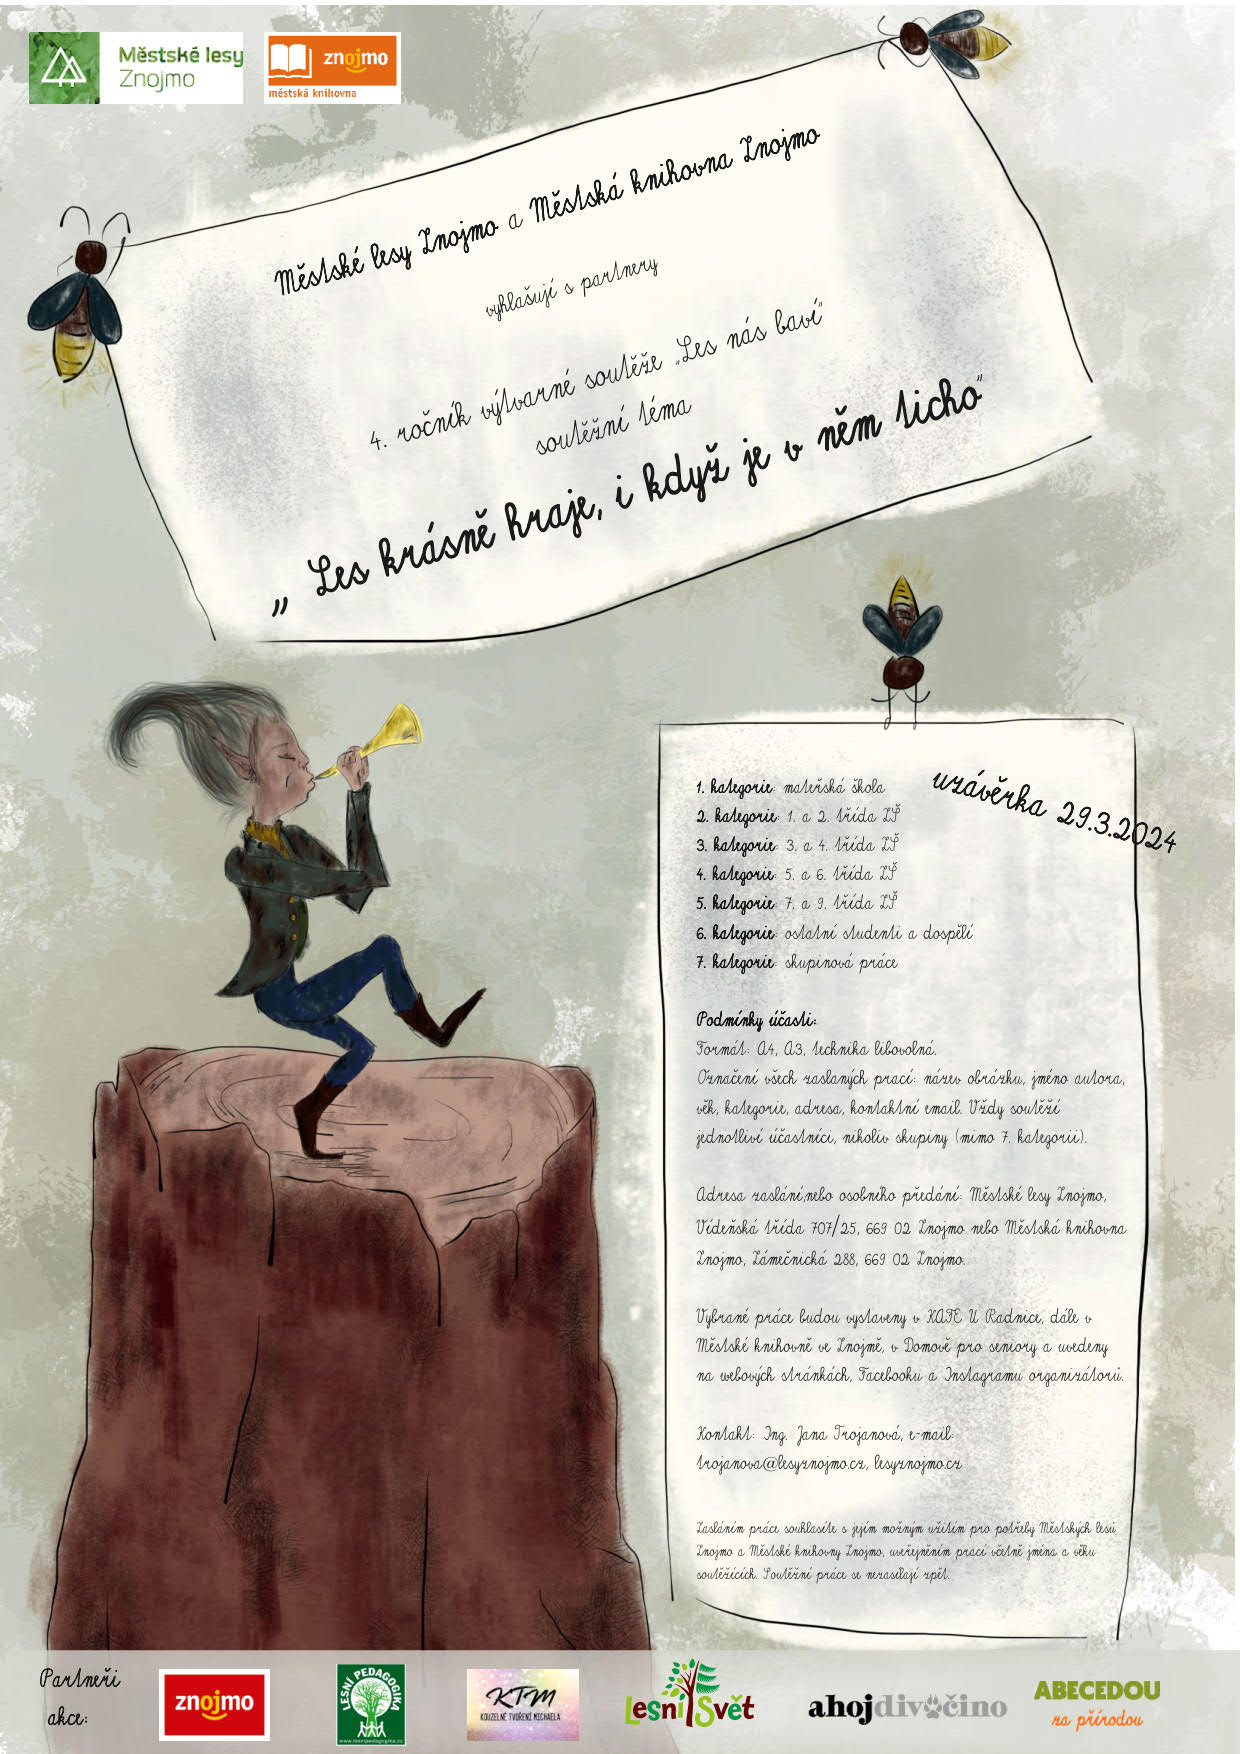 Městské lesy
Znojmo
znojmo
městská knihovna
Městské lesy Znojmo a Městská knihovna Znojmo
vyhlašují s partnery
4. ročník výtvarné soutěže „Les nás baví“
soutěžní téma
„ Les krásně hraje, i když je v něm ticho“
uzávěrka 29.3.2024
1. kategorie: mateřská škola
2. kategorie: 1. a 2. třída ZŠ
3. kategorie: 3. a 4. třída ZŠ
4. kategorie: 5. a 6. třída ZŠ
5. kategorie: 7. a 9. třída ZŠ
6. kategorie: ostatní studenti a dospělí
7. kategorie: skupinová práce
Podmínky účasti:
Formát: A4, A3, technika libovolná.
Označení všech zaslaných prací: název obrázku, jméno autora,
věk, kategorie, adresa, kontaktní email. Vždy soutěží
jednotliví účastníci, nikoliv skupiny (mimo 7. kategorii).
Adresa zaslání,nebo osobního předání: Městské lesy Znojmo,
Vídeňská třída 707/25, 669 02 Znojmo nebo Městská knihovna
Znojmo, Zámečnická 288, 669 02 Znojmo.
Vybrané práce budou vystaveny v KAFE U Radnice, dále v
Městské knihovně ve Znojmě, v Domově pro seniory a uvedeny
na webových stránkách, Facebooku a Instagramu organizátorů.
Kontakt: Ing. Jana Trojanová, e-mail:
trojanova@lesyznojmo.cz, lesyznojmo.cz
Zasláním práce souhlasíte s jejím možným užitím pro potřeby Městských lesů
Znojmo a Městské knihovny Znojmo, uveřejněním prací včetně jména a věku
soutěžících. Soutěžní práce se nezasílají zpět.
Partneři
akce:
znojmo
LESNÍ PEDAGOGIKA
www.lesnipedagogika.cz
KTM
KOUZELNÉ TVOŘENÍ MICHAELA
Lesní Svět
ahojdivočino
ABECEDOU
za přírodou